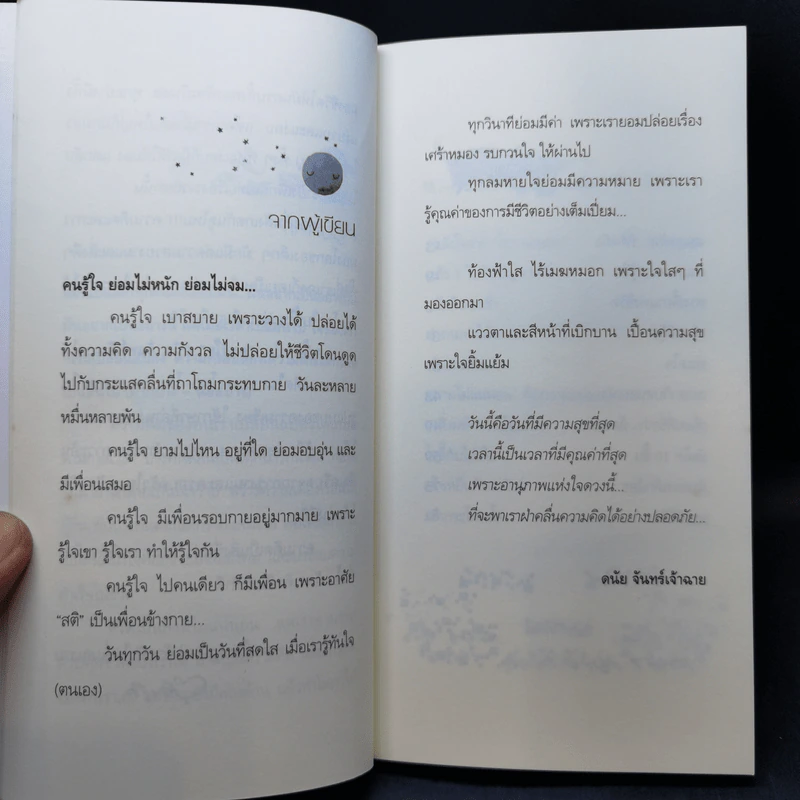 จากผู้เขียน
คนรู้ใจ ย่อมไม่หนัก ย่อมไม่จม...
คนรู้ใจ เบาสบาย เพราะวางได้ ปล่อยได้
ทั้งความคิด ความกังวล ไม่ปล่อยให้ชีวิตโดนดูด
ไปกับกระแสคลื่นที่ถาโถมกระทบกาย วันละหลาย
หมื่นหลายพัน
คนรู้ใจ ยามไปไหน อยู่ที่ใด ย่อมอบอุ่น และ
มีเพื่อนเสมอ
คนรู้ใจ มีเพื่อนรอบกายอยู่มากมาย เพราะ
รู้ใจเขา รู้ใจเรา ทำให้รู้ใจกัน
คนรู้ใจ ไปคนเดียว ก็มีเพื่อน เพราะอาศัย
“สติ” เป็นเพื่อนข้างกาย...
วันทุกวัน ย่อมเป็นวันที่สดใส เมื่อเรารู้ทันใจ
(ตนเอง)
ทุกวินาทีย่อมมีค่า เพราะเรายอมปล่อยเรื่อง
เศร้าหมอง รบกวนใจ ให้ผ่านไป
ทุกลมหายใจย่อมมีความหมาย เพราะเรา
รู้คุณค่าของการมีชีวิตอย่างเต็มเปี่ยม...
ท้องฟ้าใส ไร้เมฆหมอก เพราะใจใสๆ ที่
มองออกมา
แววตาและสีหน้าที่เบิกบาน เปื้อนความสุข
เพราะใจยิ้มแย้ม
วันนี้คือวันที่มีความสุขที่สุด
เวลานี้เป็นเวลาที่มีคุณค่าที่สุด
เพราะอานุภาพแห่งใจดวงนี้...
ที่จะพาเราฝ่าคลื่นความคิดได้อย่างปลอดภัย...
ดนัย จันทร์เจ้าฉาย